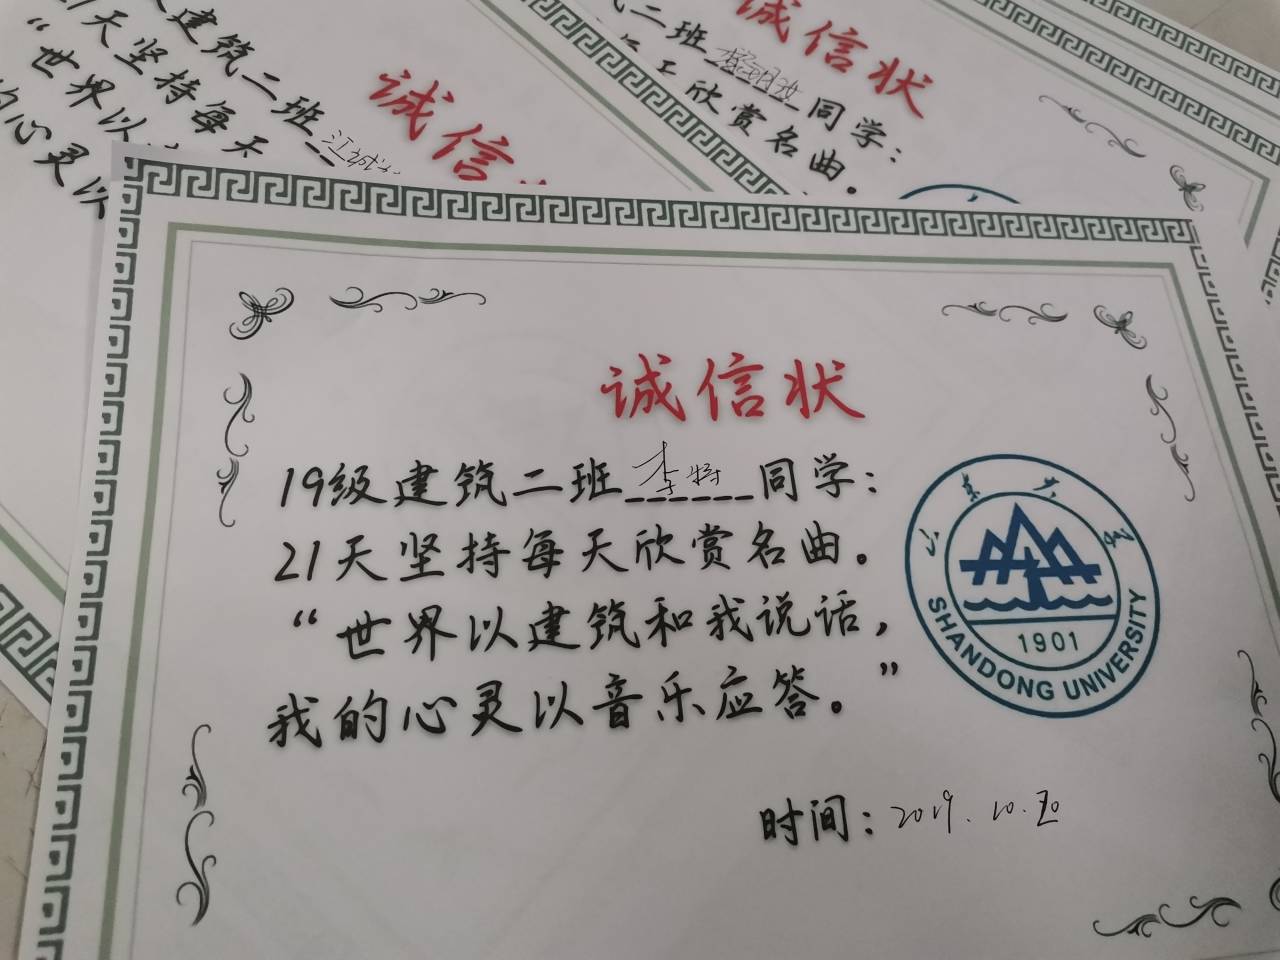 建筑二班
21天坚持每天
“世界以
的心灵以
诚信
二班
同学：
欣赏名曲。
诚信状
诚信状
19级建筑二班李特同学：
21天坚持每天欣赏名曲。
“世界以建筑和我说话，
我的心灵以音乐应答。”
时间：2019.10.20
山东大学
1901
SHANDONG UNIVERSITY